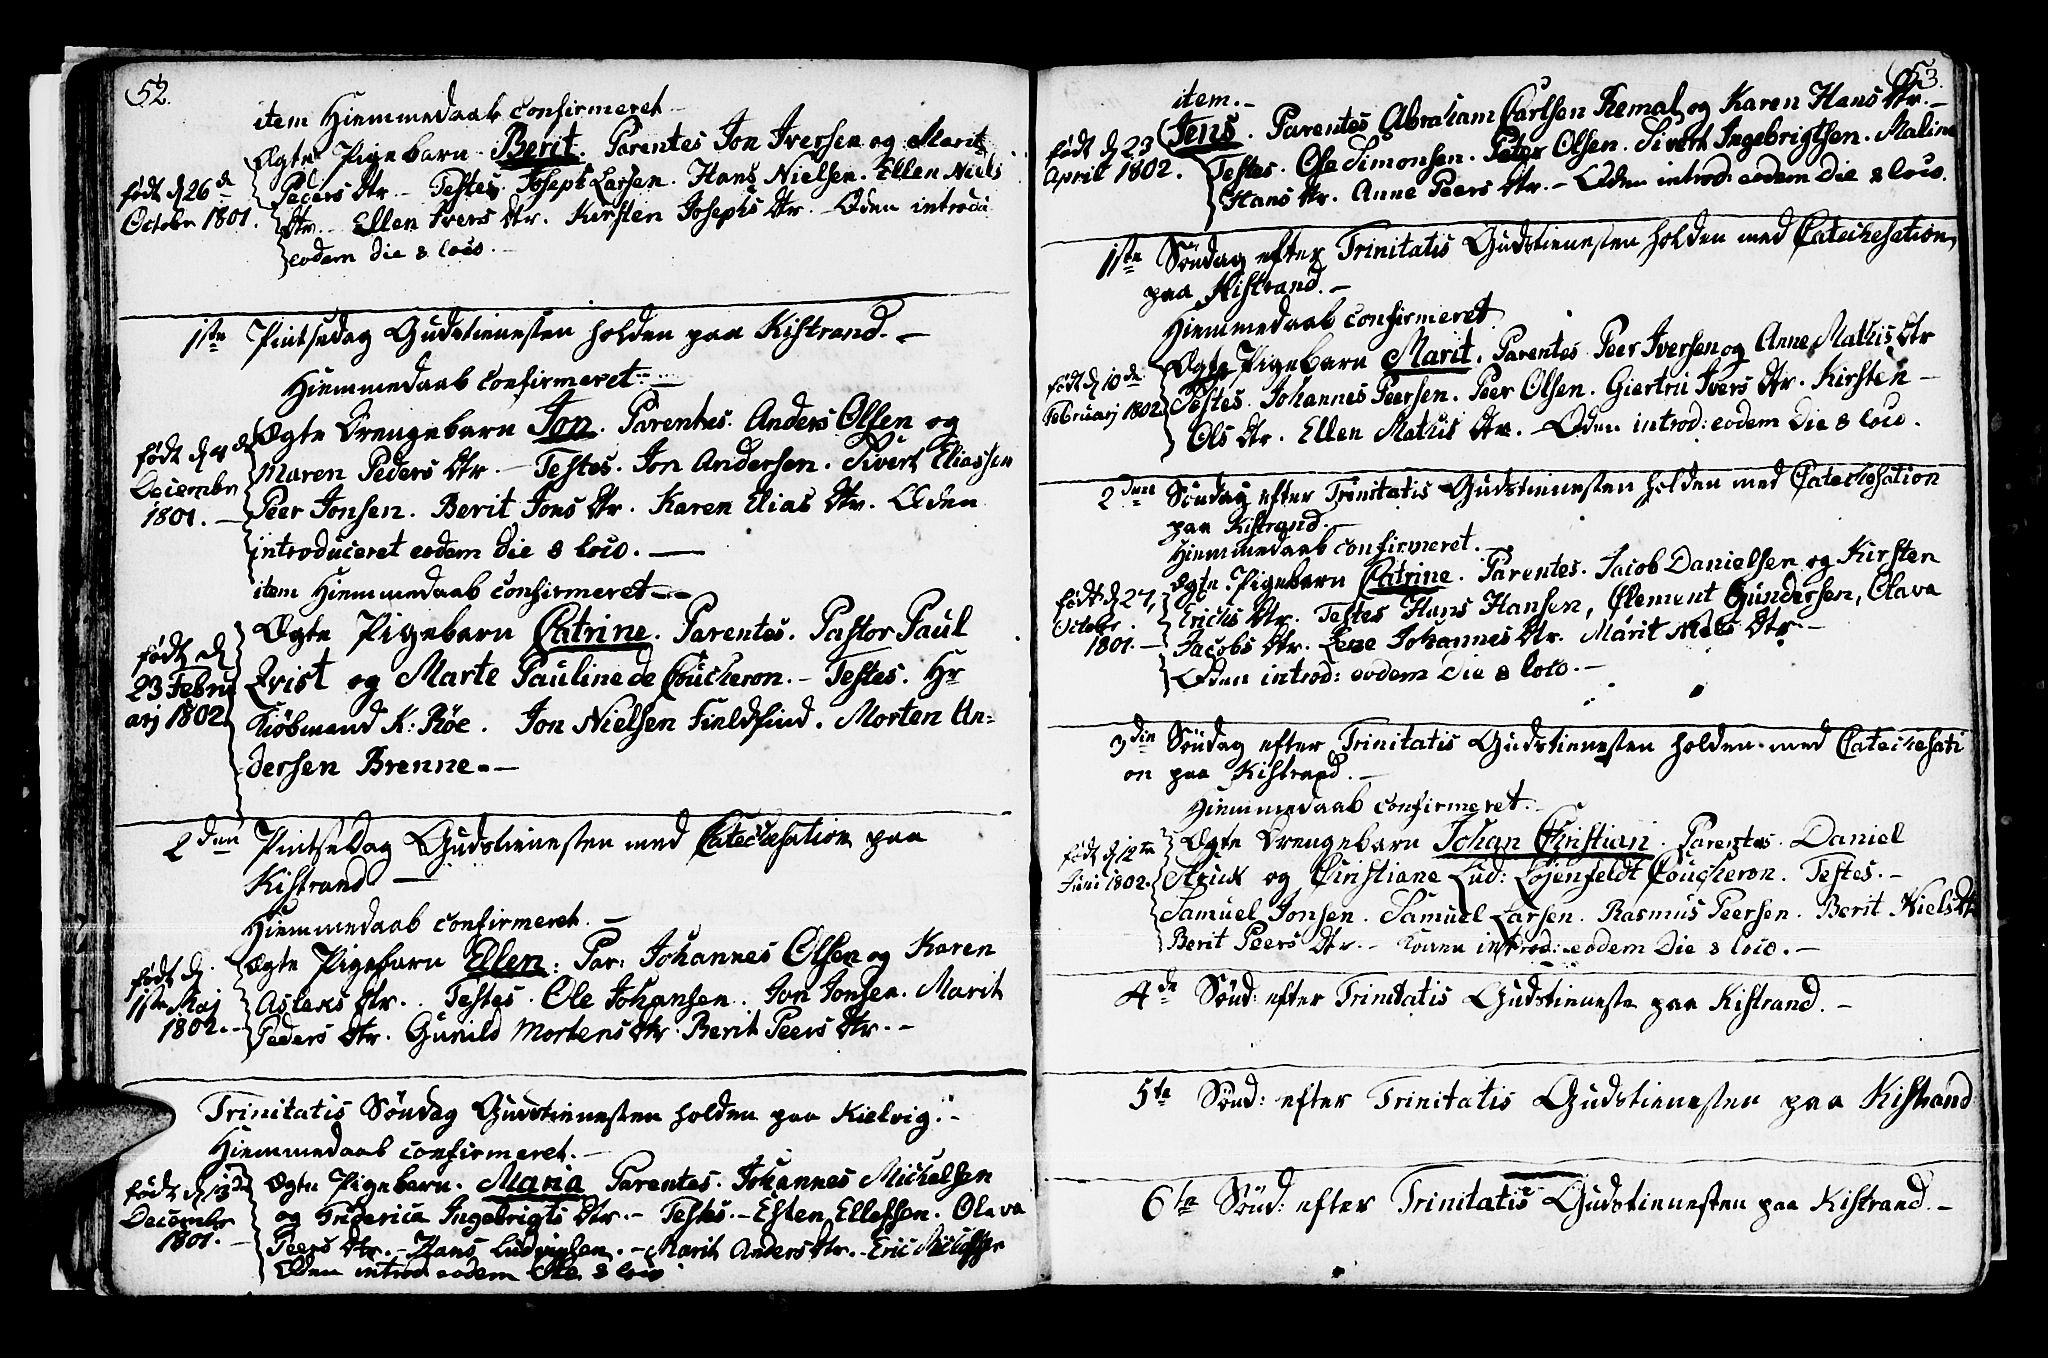 52.
item Hiemmedaab confirmeret
Ægte Pigebarn Berit. Parentes Jon Iversen og Marit
født d 26de
Peders Dtr. – Testes. Joseph Larsen. Hans Nielsen. Ellen Niels
October 1801.
Dtr. Ellen Ivers Dtr. Kirsten Josephs Dtr. – introdu
eodem die & loco. –
1ste Pintsedag Gudstienesten holden paa Kistrand. –
Hiemmedaab confirmeret. –
Ægte Drengebarn Jon. Parentes. Anders Olsen og
født d
Maren Peders Dtr. – Testes. Jon Andersen. Sivert Eliassen
Decembr
Peer Jonsen. Berit Jons Dtr. Karen Elias Dtr.
1801. –
introduceret eodem die & loco. –
item Hiemmedaab confirmeret –
Ægte Pigebarn Catrine. Parentes. Pastor Paul
født d
Qvist og Marte Pauline de Coucheron. – Testes. Hr
23 Febru
arj 1802
Kiöbmand K: Röe. Jon Nielsen Fieldfind. Morten An=
dersen Brenne. –
2den Pintsedag Gudstienesten med Catechesation paa
Kistrand. –
Hiemmedaab confirmeret. –
Ægte Pigebarn Ellen. Par: Johannes Olsen og Karen
født d.
1ste Maj
Aslaks Dtr. Testes. Ole Johansen. Jon Jonsen. Marit
1802. –
Peders Dtr. Gunild Mortens Dtr. Berit Peers Dtr. –
Trinitatis Söndag Gudstienesten holden paa Kielvig. –
Hiemmedaab confirmeret. –
født d 13de
Ægte Pigebarn. Maria Parentes. Johannes Michelsen
Decembr
og Friderica Ingebrigts Dtr. – Testes. – Esten Ellefsen. Olava
1801. –
Peers Dtr. – Hans Ludvigsen. – Marit Anders Dtr. – Eric
introd: eodem die & loco
53.
item. –
Jens. Parentes Abraham Carlsen Remal og Karen Hans Dtr. –
født d 23
Testes. Ole Simonsen. Peter Olsen. Sivert Ingebrigtsen. Maline
April 1802.
Hans Dtr. Anne Peers Dtr. – introd: eodem die & loco.
1ste Söndag efter Trinitatis Gudstienesten holden med Catechesation
paa Kistrand. –
Hiemmedaab confirmeret.
Ægte Pigebarn Marit. Parentes. Peer Iversen og Anne Mathis Dtr
født d 10de
Februarj 1802
Testes. Johannes Peersen. Peer Olsen. Giertru Ivers Dtr. Kirsten –
Ols Dtr. Ellen Mathis Dtr. – introd: eodem die & loco.
2den Söndag efter Trinitatis Gudstienesten holden med Catechesation
paa Kistrand. –
Hiemmedaab confirmeret. –
Ægte Pigebarn Catrine. Parentes. Jacob Danielsen og Kirsten
født d 27,
Erichs Dtr. Testes Hans Hansen, Clement Gundersen, Olava
Octobr.
1801. –
Jacobs Dtr. Lene Johannes Dtr. Marit Niels Dtr. –
introd: eodem die & loco. –
3die Söndag efter Trinitatis Gudstienesten holden med Catechesati
on paa Kistrand. –
Hiemmedaab confirmeret. –
Ægte Drengebarn Johan Christian. Parentes. Daniel
født d 12te
Juni 1802.
og Christiane Lud: Löjenfeldt Coucheron. Testes. –
Samuel Jonsen. Samuel Larsen. Rasmus Peersen. Berit Niels Dtr
Berit Peers Dtr. – Konen introd: eodem die & loco. –
4de Sönd: efter Trinitatis Gudstieneste paa Kistrand. –
5te Sönd: efter Trinitatis Gudstienesten paa Kistrand
6te Sönd: efter Trinitatis Gudstienesten paa Kistrand. –